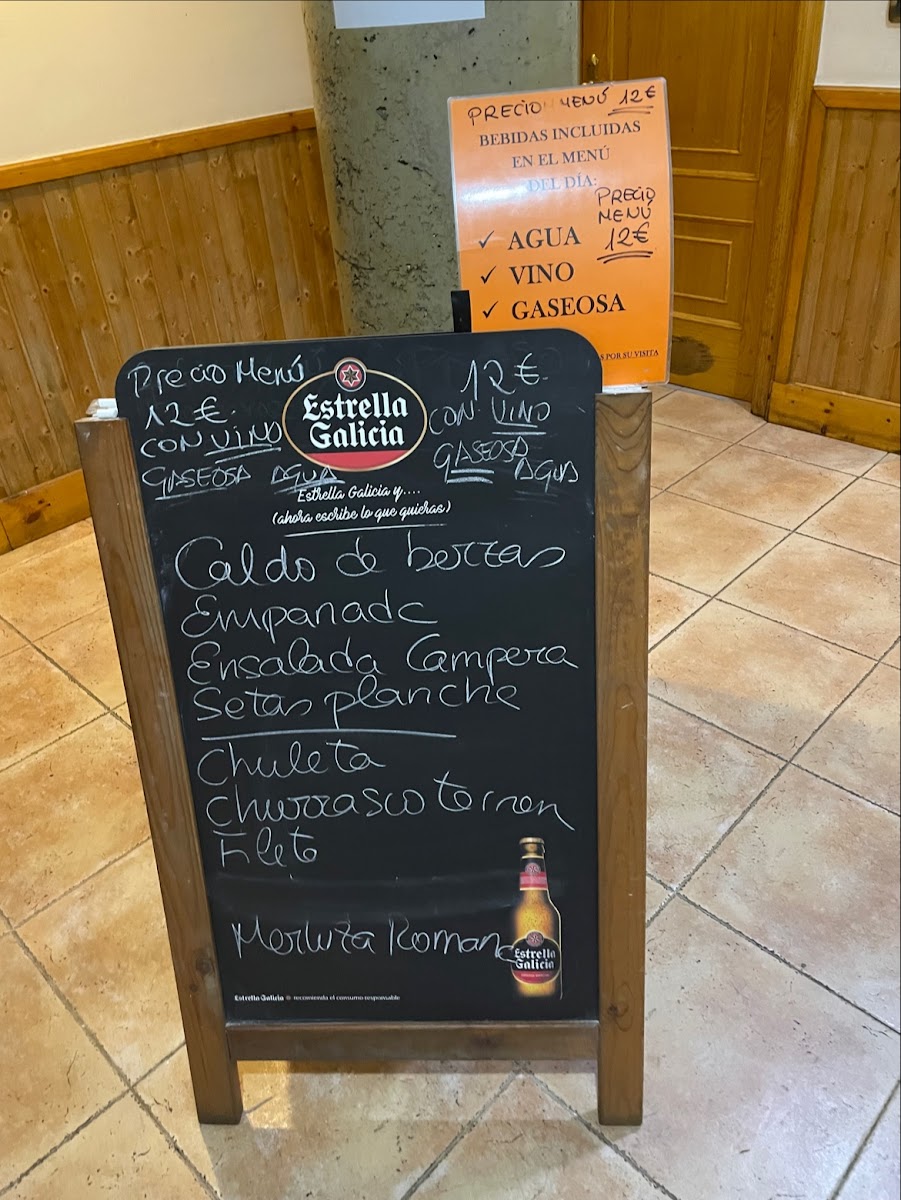 PRECIO MENÚ 12€
BEBIDAS INCLUIDAS
EN EL MENÚ
DEL DÍA:
PRECIO
MENÚ
12€
✓ AGUA
✓ VINO
✓ GASEOSA
S POR SU VISITA
Precio Menú
12€.
CON VINO
GASEOSA AGUA
Estrella
Galicia
12€.
CON VINO
GASEOSA
AGUA
Estrella Galicia y....
(ahora escribe lo que quieras)
Caldo de berzas
Empanada
Ensalada Campera
Setas plancha
Chuleta
Churrasco ternera
Filete
Merluza Romana
Estrella
Galicia
Estrella Galicia recomienda el consumo responsable